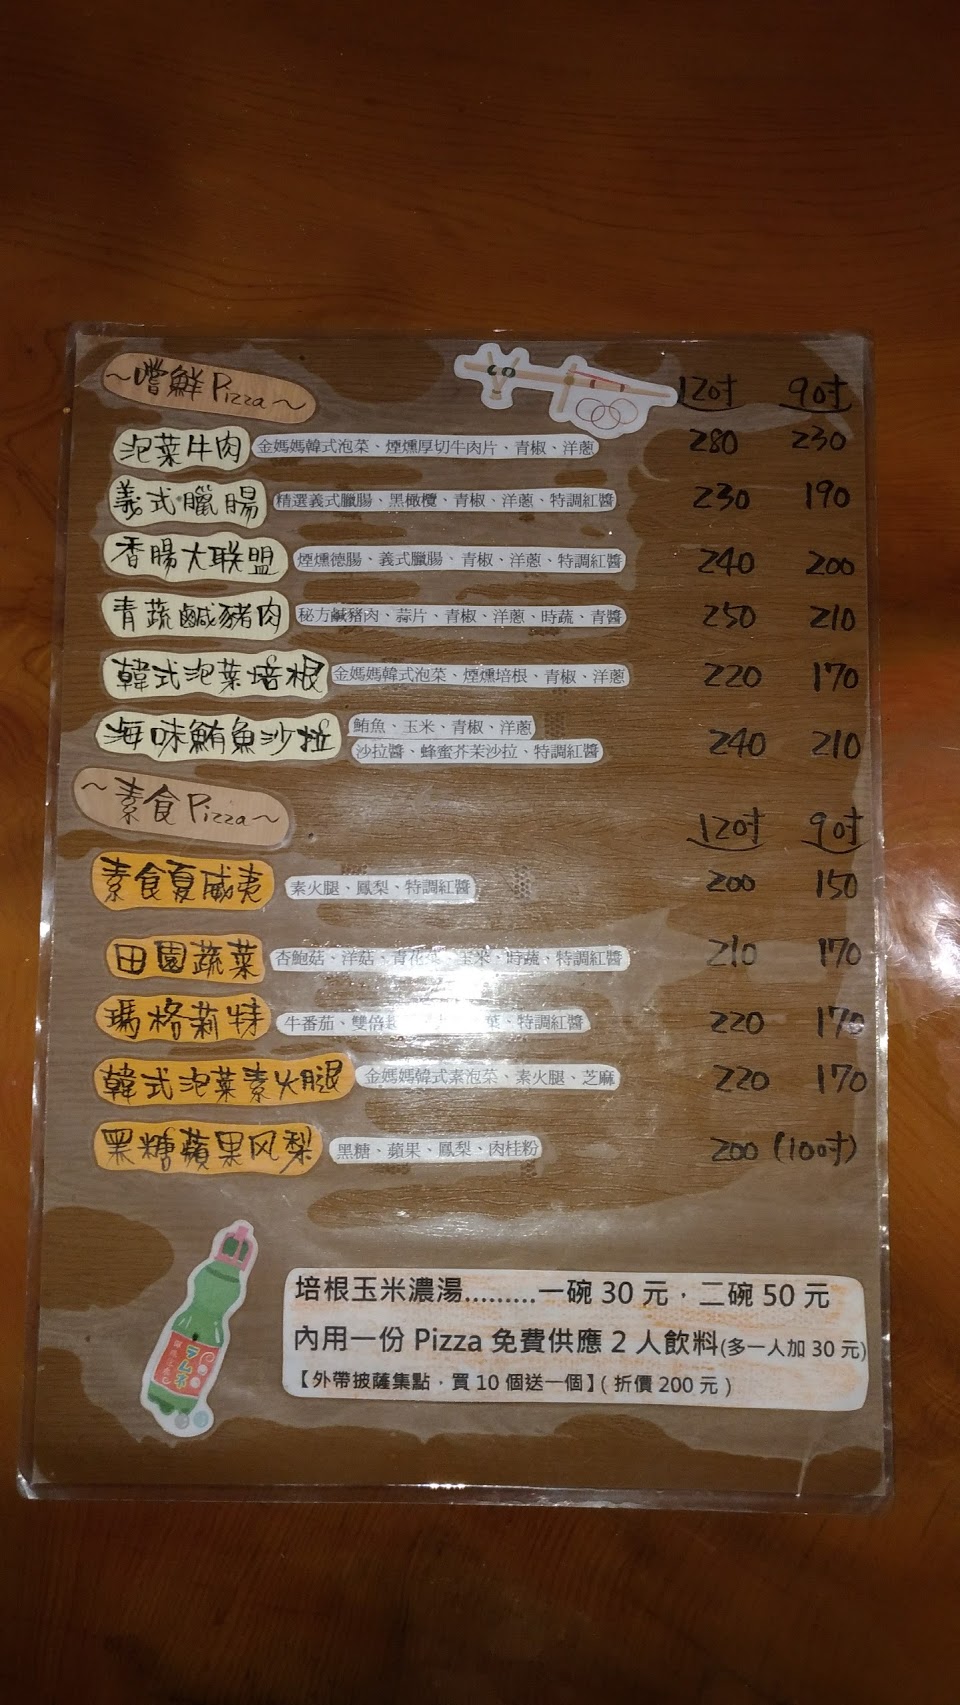 ~嚐鮮Pizza~ 12吋 9吋
泡菜牛肉 金媽媽韓式泡菜、煙燻厚切牛肉片、青椒、洋蔥 280 230
義式臘腸 精選義式臘腸、黑橄欖、青椒、洋蔥、特調紅醬 230 190
香腸大联盟 煙燻德腸、義式臘腸、青椒、洋蔥、特調紅醬 240 200
青蔬鹹豬肉 秘方鹹豬肉、蒜片、青椒、洋蔥、時蔬、青醬 250 210
韓式泡菜培根 金媽媽韓式泡菜、煙燻培根、青椒、洋蔥 220 170
海味鮪魚沙拉 鮪魚、玉米、青椒、洋蔥
沙拉醬、蜂蜜芥茉沙拉、特調紅醬 240 210
~素食Pizza~ 12吋 9吋
素食夏威夷 素火腿、鳳梨、特調紅醬 200 150
田園蔬菜 杏鮑菇、洋菇、青花菜、玉米、時蔬、特調紅醬 210 170
瑪格莉特 牛番茄、雙倍 特調紅醬 220 170
韓式泡菜素火腿 金媽媽韓式素泡菜、素火腿、芝麻 220 170
黑糖蘋果风梨 黑糖、蘋果、鳳梨、肉桂粉 200 (10吋)
ラムネ
培根玉米濃湯.........一碗 30 元，二碗 50 元
內用一份 Pizza 免費供應 2 人飲料(多一人加 30 元)
【外帶披薩集點，買 10 個送一個】( 折價 200 元 )